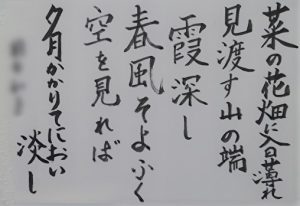 菜の花畑に入日薄れ
見渡す山の端
霞深し
春風そよふく
空を見れば
夕月かかりてにおい
淡し